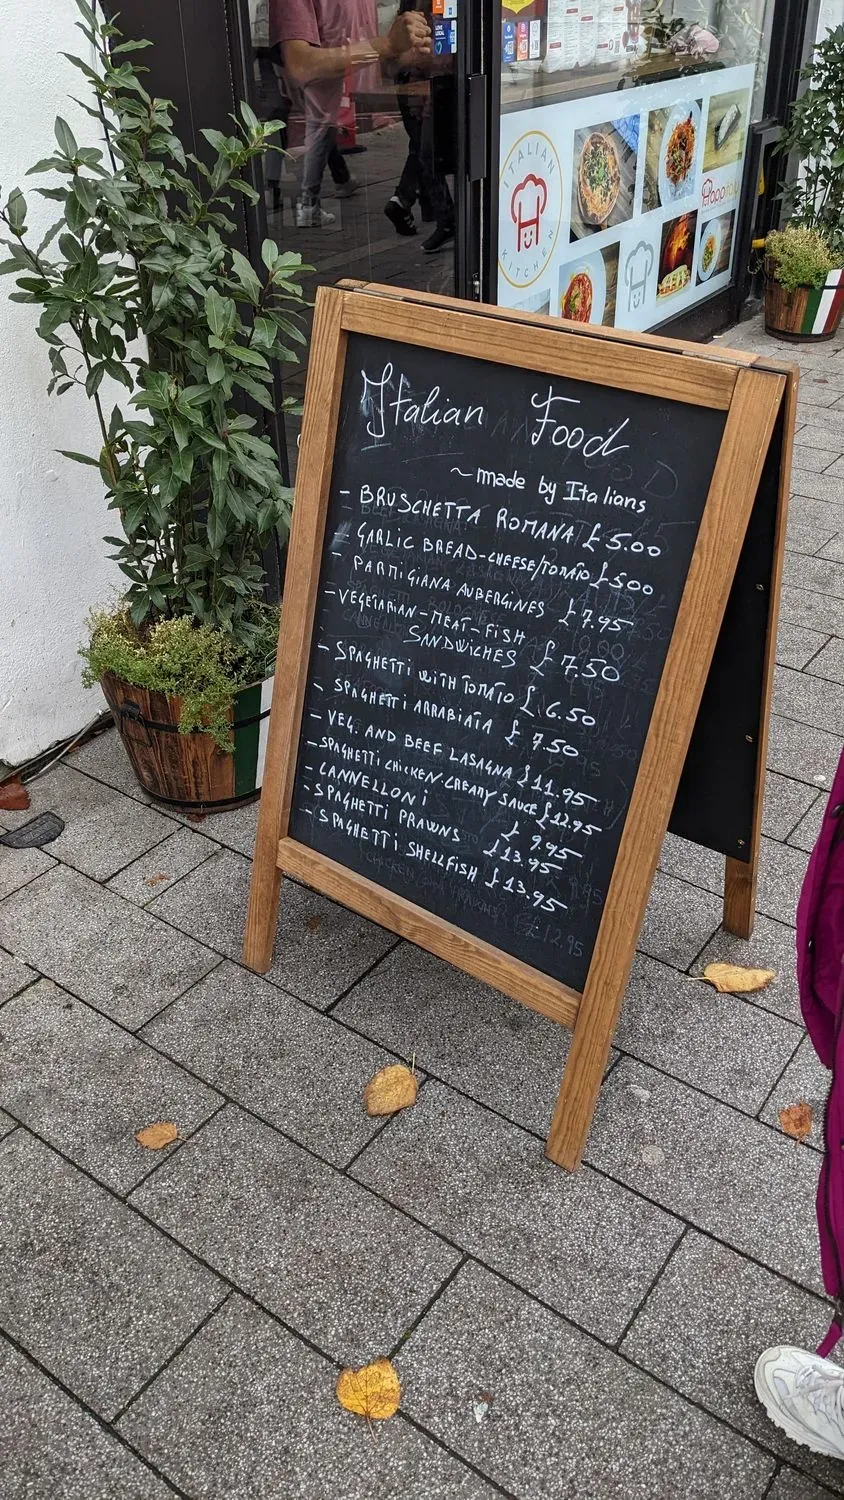 ITALIAN
KITCHEN
Italian Food
~made by Italians
- BRUSCHETTA ROMANA £5.00
- GARLIC BREAD-CHEESE/TOMATO £500
- PARMIGIANA AUBERGINES £7.95
- VEGETARIAN-MEAT-FISH
SANDWICHES £7.50
- SPAGHETTI WITH TOMATO £6.50
- SPAGHETTI ARRABIATA £7.50
- VEG. AND BEEF LASAGNA £11.95
- SPAGHETTI CHICKEN CREAMY SAUCE £12.95
- CANNELLONI £9.95
- SPAGHETTI PRAWNS £13.95
- SPAGHETTI SHELLFISH £13.95